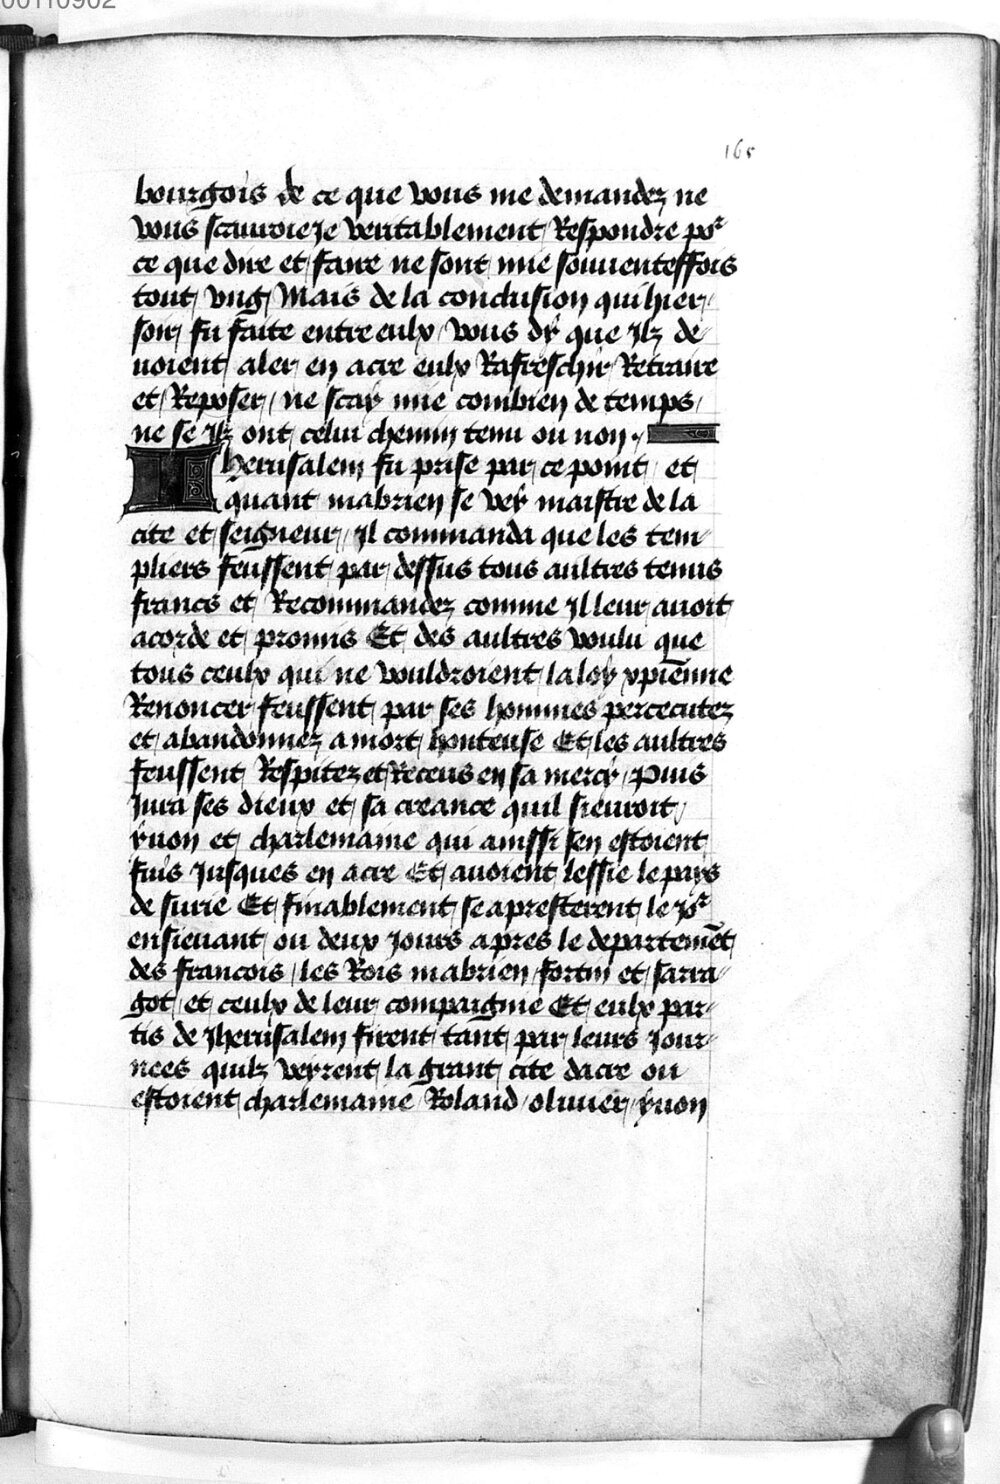 00110902
165
bourgois de ce que vous me demandez ne
vous scauroie Je veritablement Respondre por
ce que dire et faire ne sont mie souuenteffois
tout vng Mais de la conclusion qui hier
soir fu faite entre eulx / vous dy que Jlz de
uoient aler en acre eulx Rafreschir Retraire
et Reposer / ne scay mie combien de temps /
ne se Jlz ont celui chemin tenu ou non .
Jherusalem fu prise par ce point et
quant mabrien se vey maistre de la
cite et seigneur / Il commanda que les tem
pliers feussent par dessus tous aultres tenus
francs et Recommandez comme Il leur auoit
acorde et promis Et des aultres voulu que
tous ceulx qui ne vouldroient la loy xpienne
Renoncer feussent par ses hommes percecutez
et abandonnez a mort honteuse Et les aultres
feussent Respitez et Receus en sa mercy / Puis
Jura ses dieux et sa creance quil sieuroit
yuon et charlemaine qui ainssi sen estoient
fuis Jusques en acre Et auoient lessie le pays
de surie Et finablement se apresterent le Jor
ensieuant ou deux Jours apres le departemēt
des francois / les Rois mabrien fortin et sarra
got et ceulx de leur compaignie Et eulx par
tis de Jherusalem firent tant par leurs Jour
nees quilz veyrent la grant cite dacre ou
estoient charlemaine / Roland / oliuier / yuon